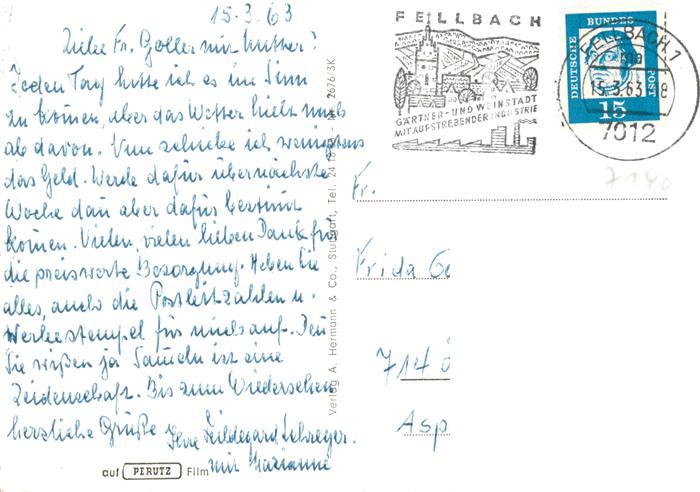 15.3.63
Liebe Fr. Goller mit Mutter!
Jeden Tag hatte ich es im Sinn
zu kommen, aber das Wetter hielt mich
ab davon. Nun schicke ich wenigstens
das Geld. Werde dafür übernächste
Woche dan aber dafür bestimmt
kommen. Vielen, vielen lieben Dank für
die preiswerte Besorgung. Heben Sie
alles, auch die Postleitzahlen u.
Werbestempel für mich auf. Den
Sie wißen ja Sameln ist eine
Leidenschaft. Bis zum Wiedersehen
herzliche Grüße Ihre Hildegard
mit Marianne
auf PERUTZ Film
Verlag A. Hermann & Co., Stuttgart, Tel.
FELLBACH
GÄRTNER- UND WEINSTADT
MIT AUFSTREBENDER INDUSTRIE
DEUTSCHE BUNDES POST
15
FELLBACH 1
15.3.63
7012
7140
Fr.
Frida G
714
Asp